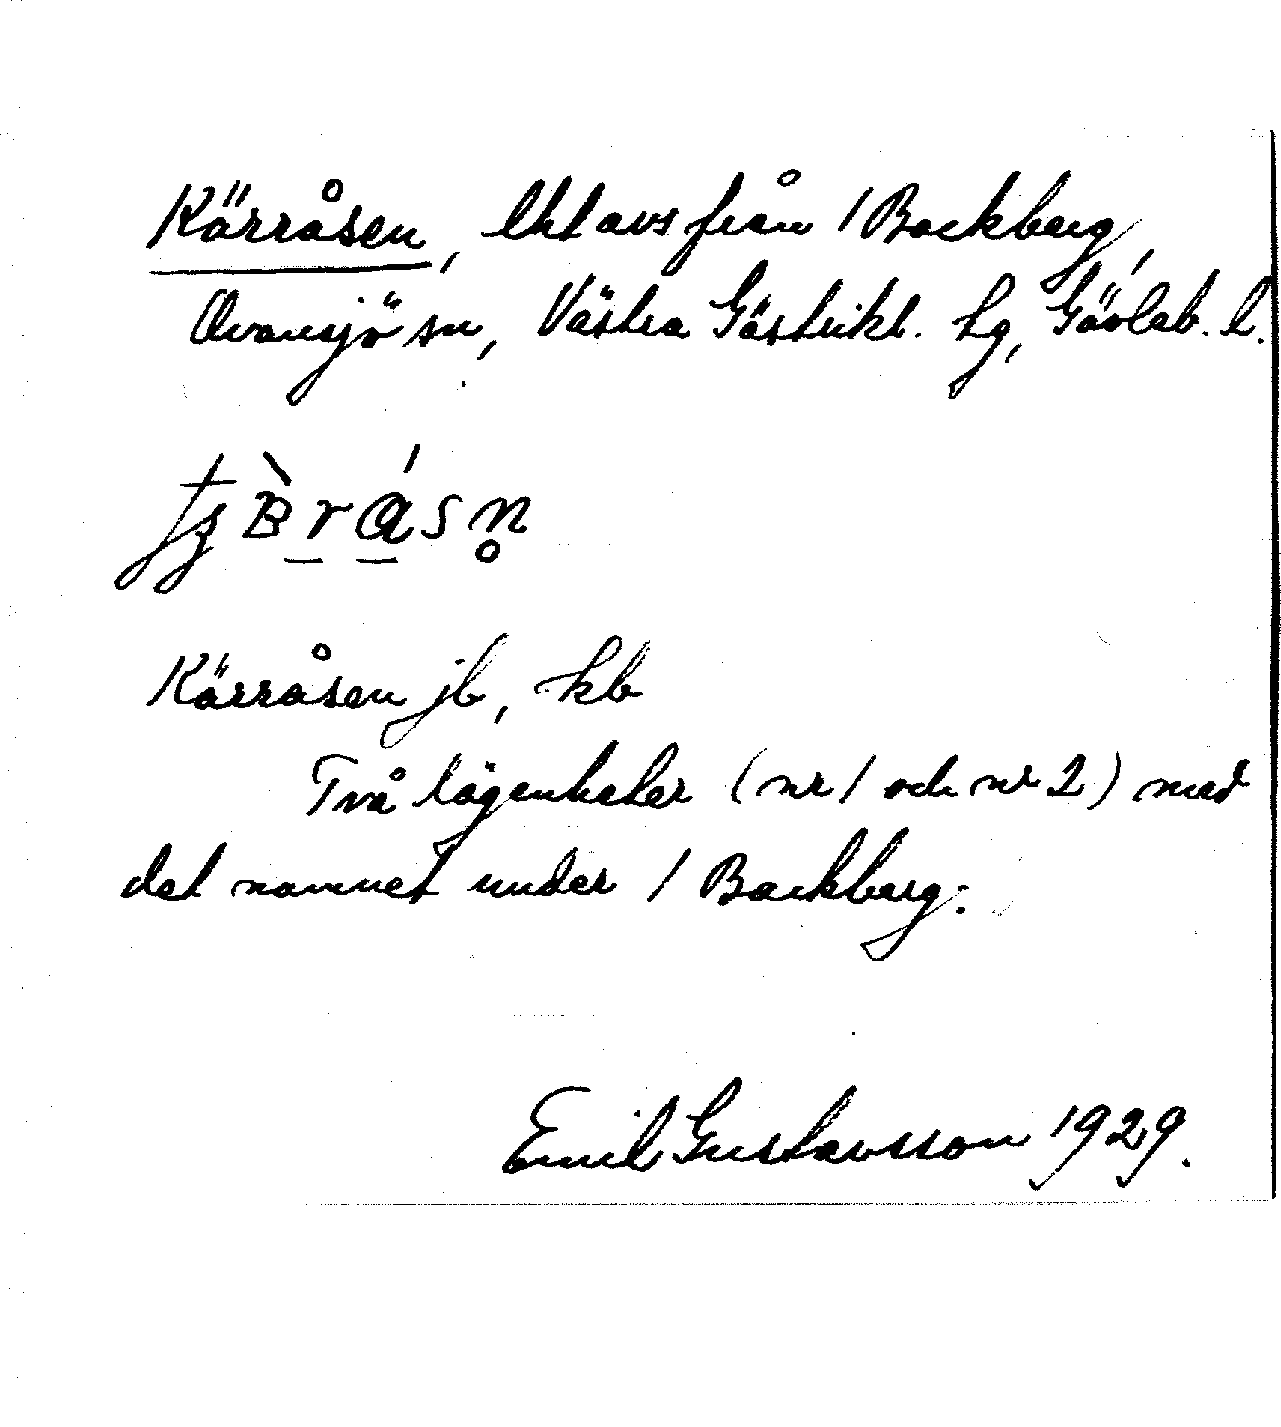 Kärråsen, lht avs från 1 Backberg,
Ovansjö sn, Västra Gästrikl. hg, Gävleb. l.
Kärråsen jb, kb
Två lägenheter (nr 1 och nr 2) med
det namnet under 1 Backberg.
Emil Gustavsson 1929.